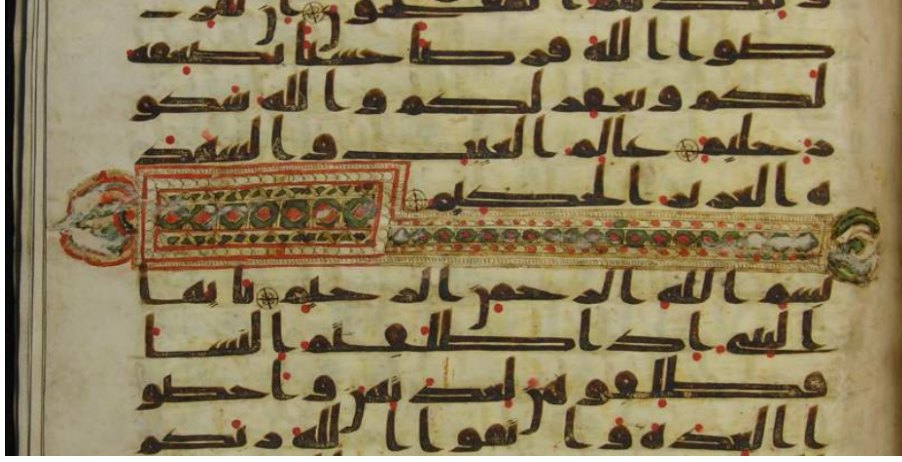 ولئك هم المفلحون ان تقر
ضوا الله قرضا حسنا يضعفه
لكم ويغفر لكم والله شكو
ر حليم عالم الغيب والشهد
ه العزيز الحكيم
بسم الله الرحمن الرحيم يا يها
النبي اذا طلقتم النسا
فطلقوهن لعدتهن واحصو
ا العده واتقوا الله ربكم